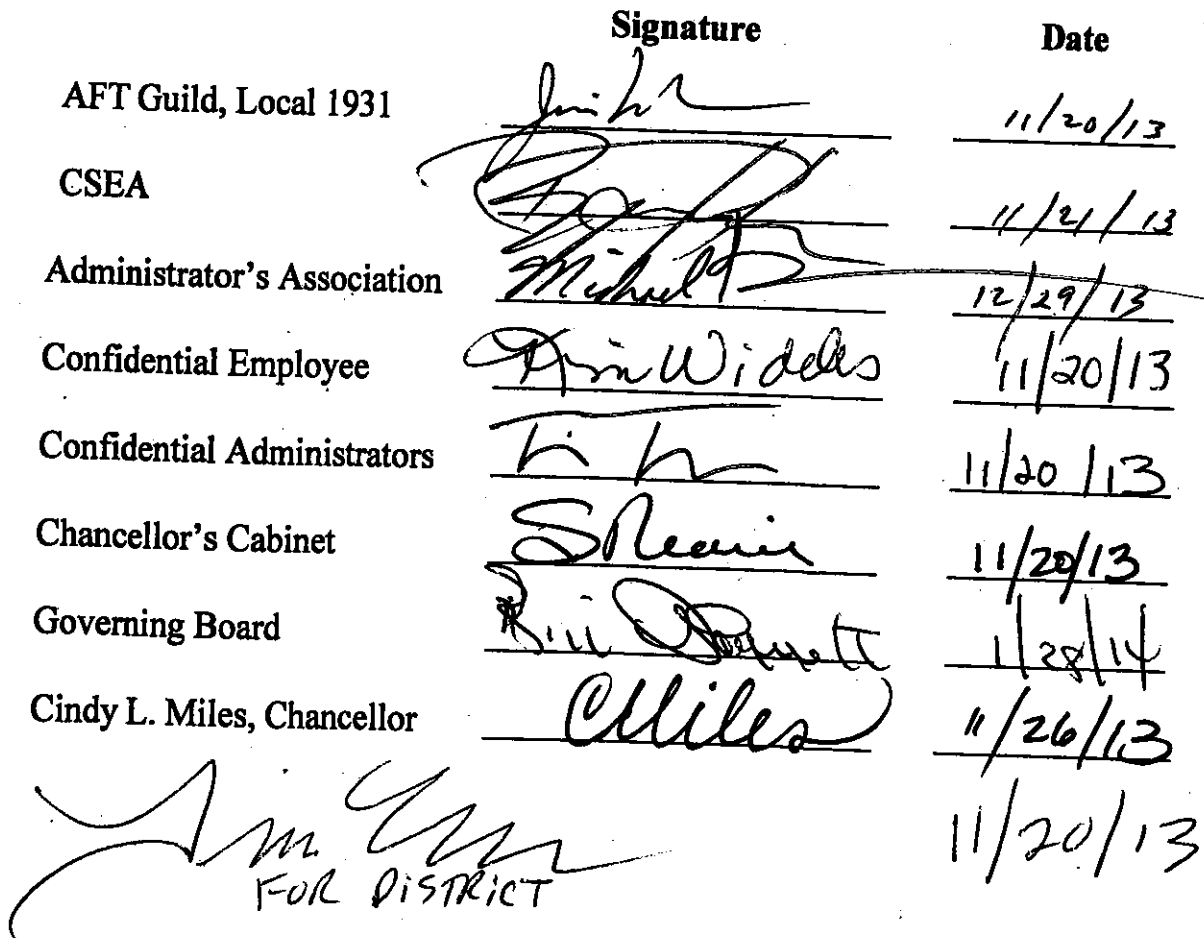 Signature Date
AFT Guild, Local 1931 11/20/13
CSEA 11/21/13
Administrator's Association Michael 12/29/13
Confidential Employee Kim Widdes 11/20/13
Confidential Administrators 11/20/13
Chancellor's Cabinet 11/20/13
Governing Board Bill 1/28/14
Cindy L. Miles, Chancellor CMiles 11/26/13
11/20/13
FOR DISTRICT